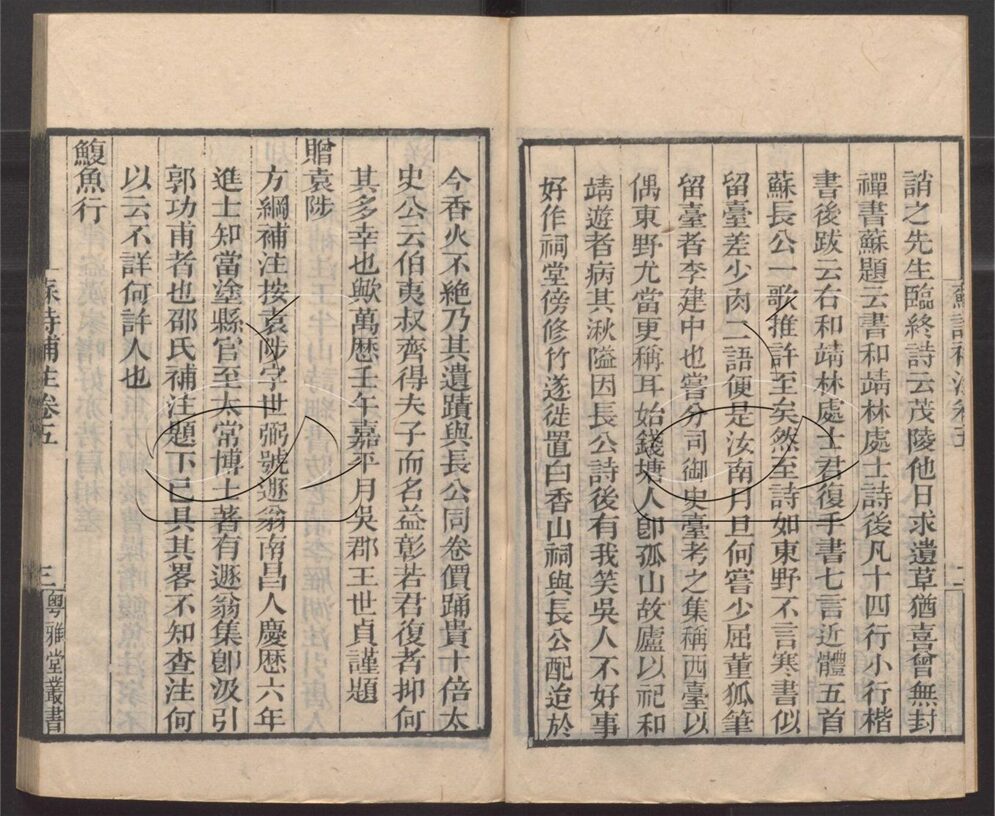 誚之先生臨終詩云茂陵他日求遺草猶喜曾無封
禪書蘇題云書和靖林處士詩後凡十四行小行楷
書後跋云右和靖林處士君復手書七言近體五首
蘇長公一歌推許至矣然至詩如東野不言寒書似
留臺差少肉二語便是汝南月旦何嘗少屈董狐筆
留臺者李建中也嘗分司御史臺考之集稱西臺以
偶東野尤當更稱耳始錢塘人卽孤山故廬以祀和
靖遊者病其湫隘因長公詩後有我笑吳人不好事
好作祠堂傍修竹遂徙置白香山祠與長公配迨於
今香火不絶乃其遺蹟與長公同卷價踊貴十倍太
史公云伯夷叔齊得夫子而名益彰若君復者抑何
其多幸也歟萬歷壬午嘉平月吳郡王世貞謹題
贈袁陟
方綱補注按袁陟字世弼號遯翁南昌人慶歷六年
進士知當塗縣官至太常博士著有遯翁集卽汲引
郭功甫者也邵氏補注題下已具其畧不知查注何
以云不詳何許人也
鰒魚行
蘇詩補注卷五
三
粤雅堂叢書